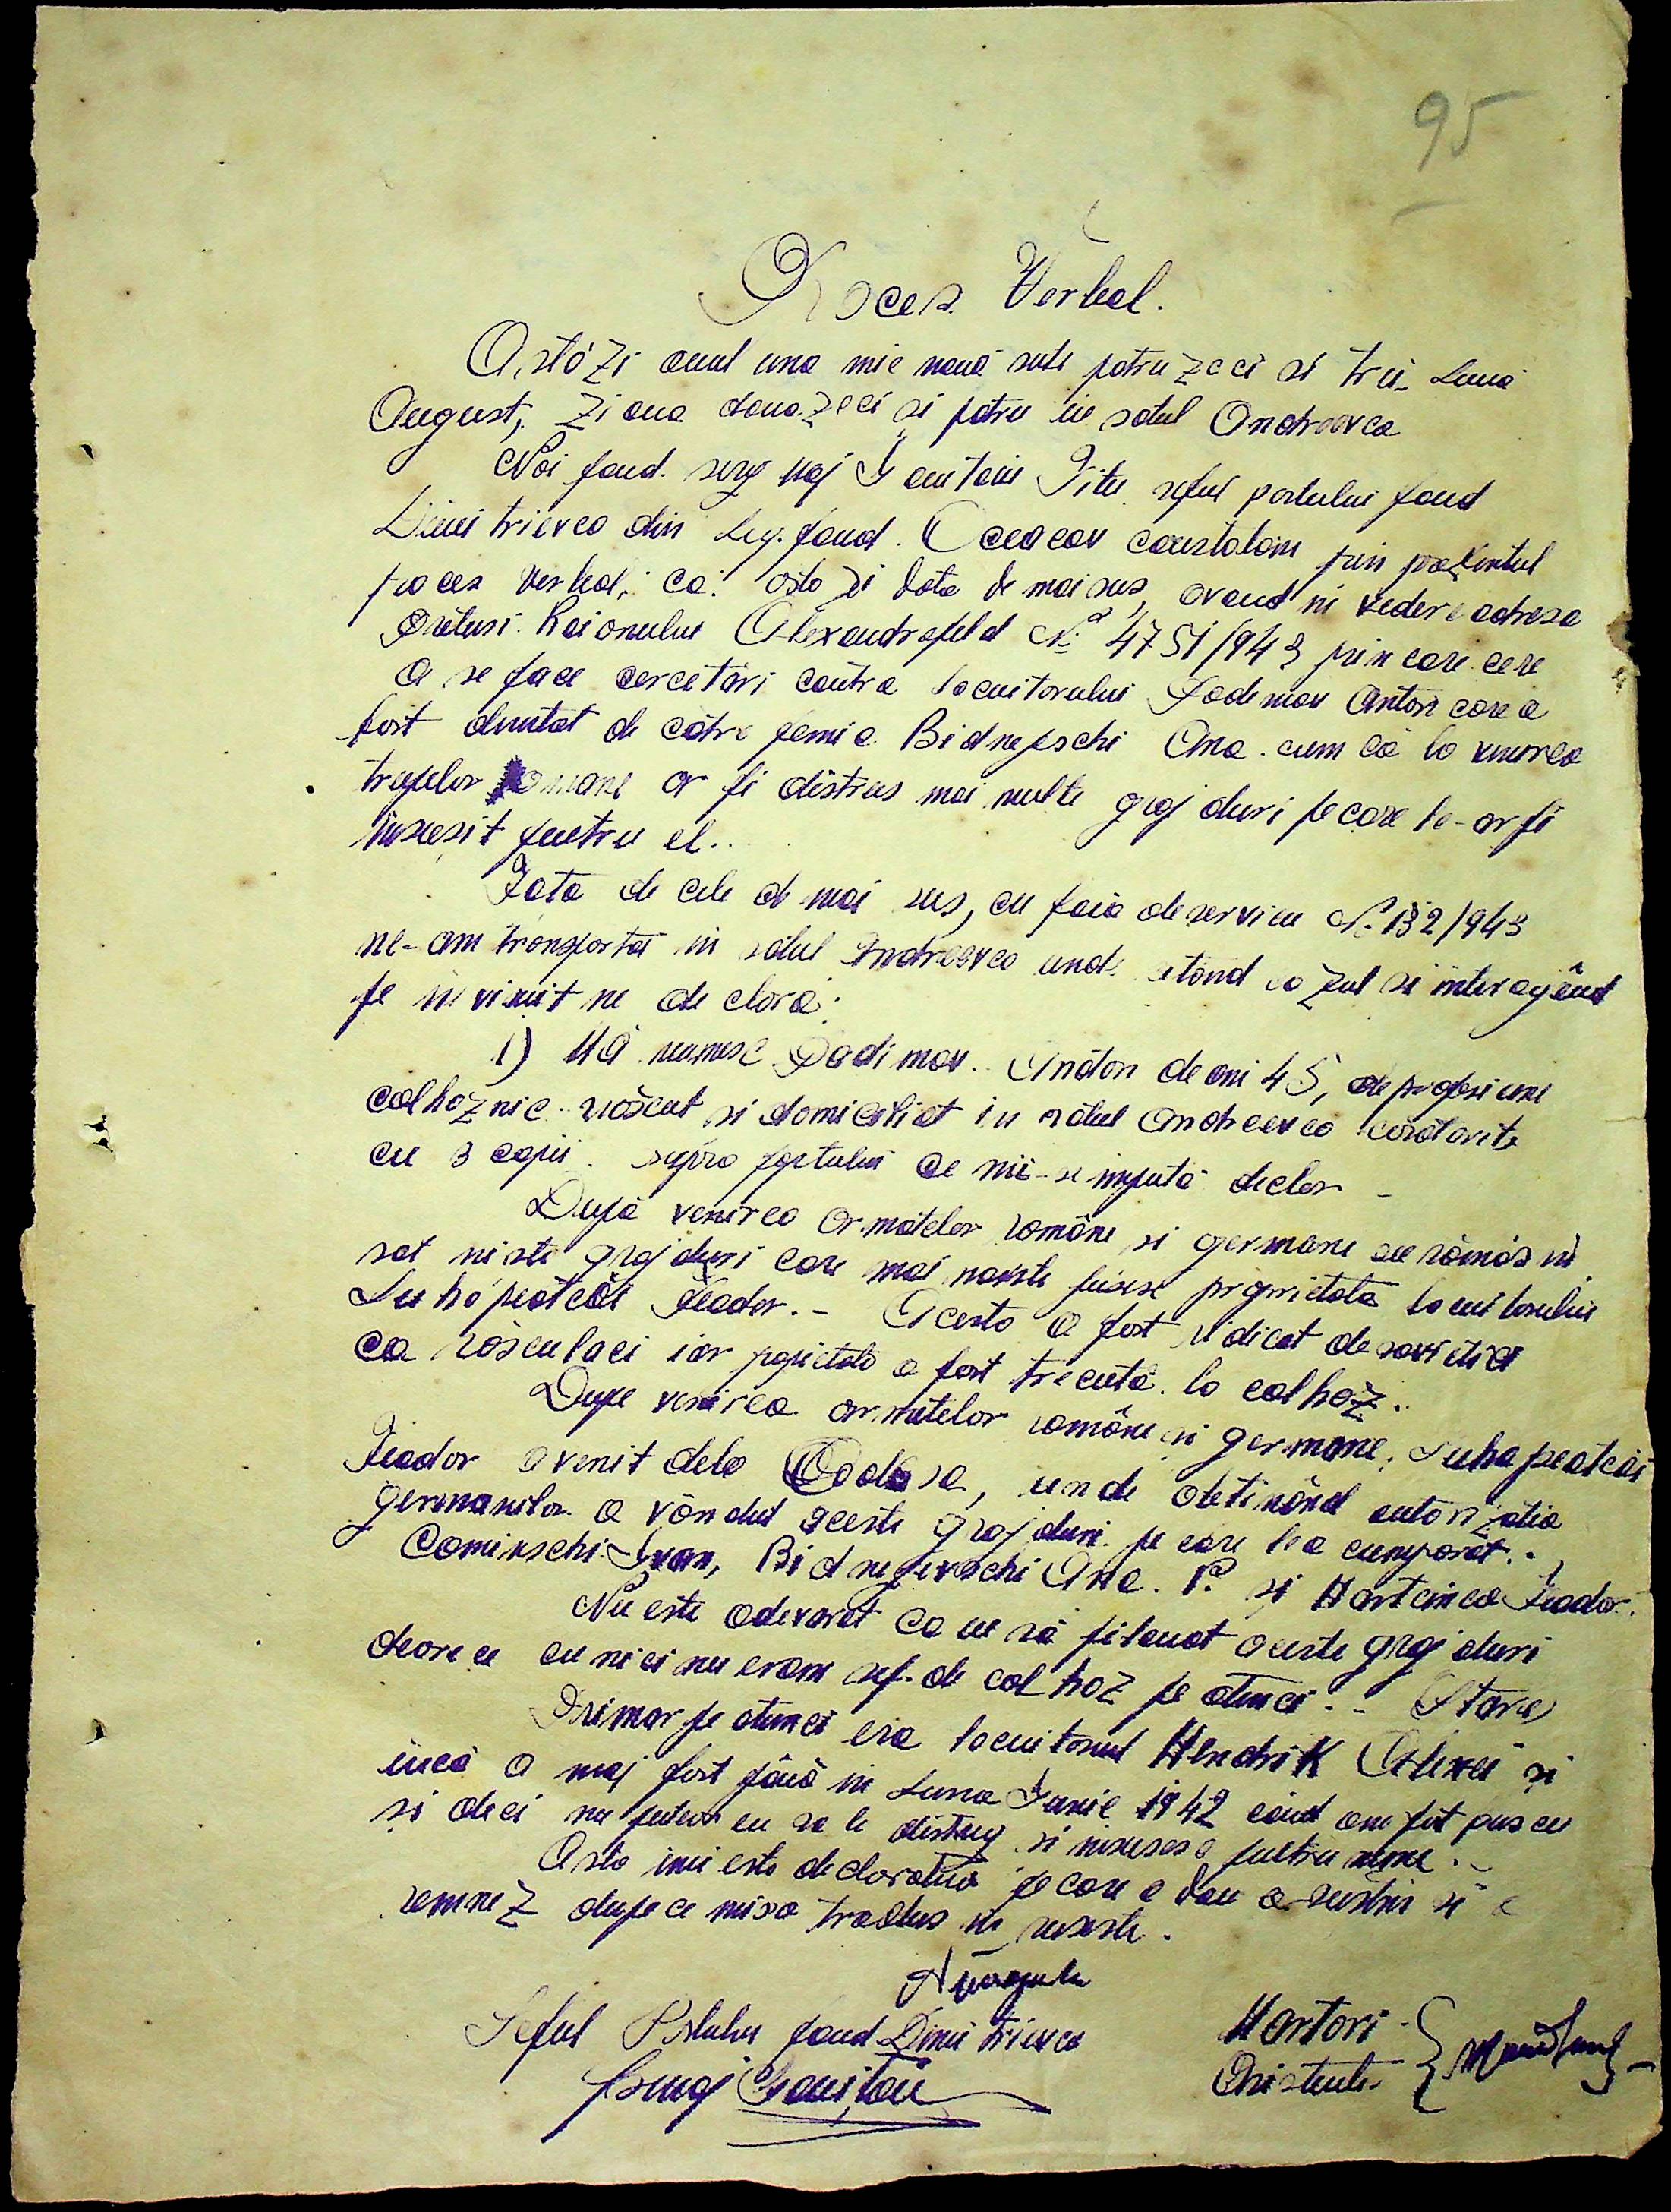 95
Proces Verbal.
Astăzi anul una mie nouă sute patruzeci si trei Luna
August, ziaua douazeci și patru in satul Andreevca
Noi jand. serg maj Ganitaiu Titu seful postului jand
Dimitrievca din Leg. jand. Oceacov constatam prin prezentul
proces verbal, că: astazi data de mai sus, avand in vedere adresa
Preturi. Raionului Alexandrofeld No 4751/943 prin care cere
a se face cercetări contra locuitorului Fademov Anton care a
fost denuntat de către femia Bidnepschi Ana. cum că la venirea
trupelor romane ar fi distrus mai multe grajduri pe care le-ar fi
însusit pentru el..
Fata de cele de mai sus, cu foia de serviciu No. 132/943
ne-am transportat in satul Andreevca unde cetând cazul si interogând
pe invinuit ne declară:
1) Mă numesc Vadimov. Andon de ani 45, de profesiune
colhoznic. născut si domiciliat in satul Andreevca căsătorit
cu 3 copii. supra faptului ce mi-se impută declar -
După venirea armatelor române si germane au rămas in
sat niste grajduri care mai nainte fusese proprietata locuitorului
Suhopeatcăi Feador. - Acesta a fost ridicat de sovietici
ca chisculaci iar propietate a fost trecută la colhoz.
Dupe venirea armatelor române si germane, Suhapeatcăi
Feador a venit dela Oodesa, unde obtinând autorizatia
germanilor a vândut aceste grajduri pe care le a cumparat..
Cominschi Ivan, Bidnepevschi Ana. P. si Hartcinco Feador.
Nu este adevarat ca eu să fi luat aceste grajduri
deorece eu nici nu eram sef. de colhoz pe atunci. -
Primar pe atunci era locuitorul Hendrik Alexei și
încă a maj fost până in Luna Iunie 1942 când am fost pus eu
și deci nu puteam eu sa le distrug si insusesc pentru mine. -
Asta imi este declaratia pe care o dau o sustin si o
semnez dupe ce mi sa tradus in ruseste.
Seful Postului jand Dimitrievca
Martori
Asistenti